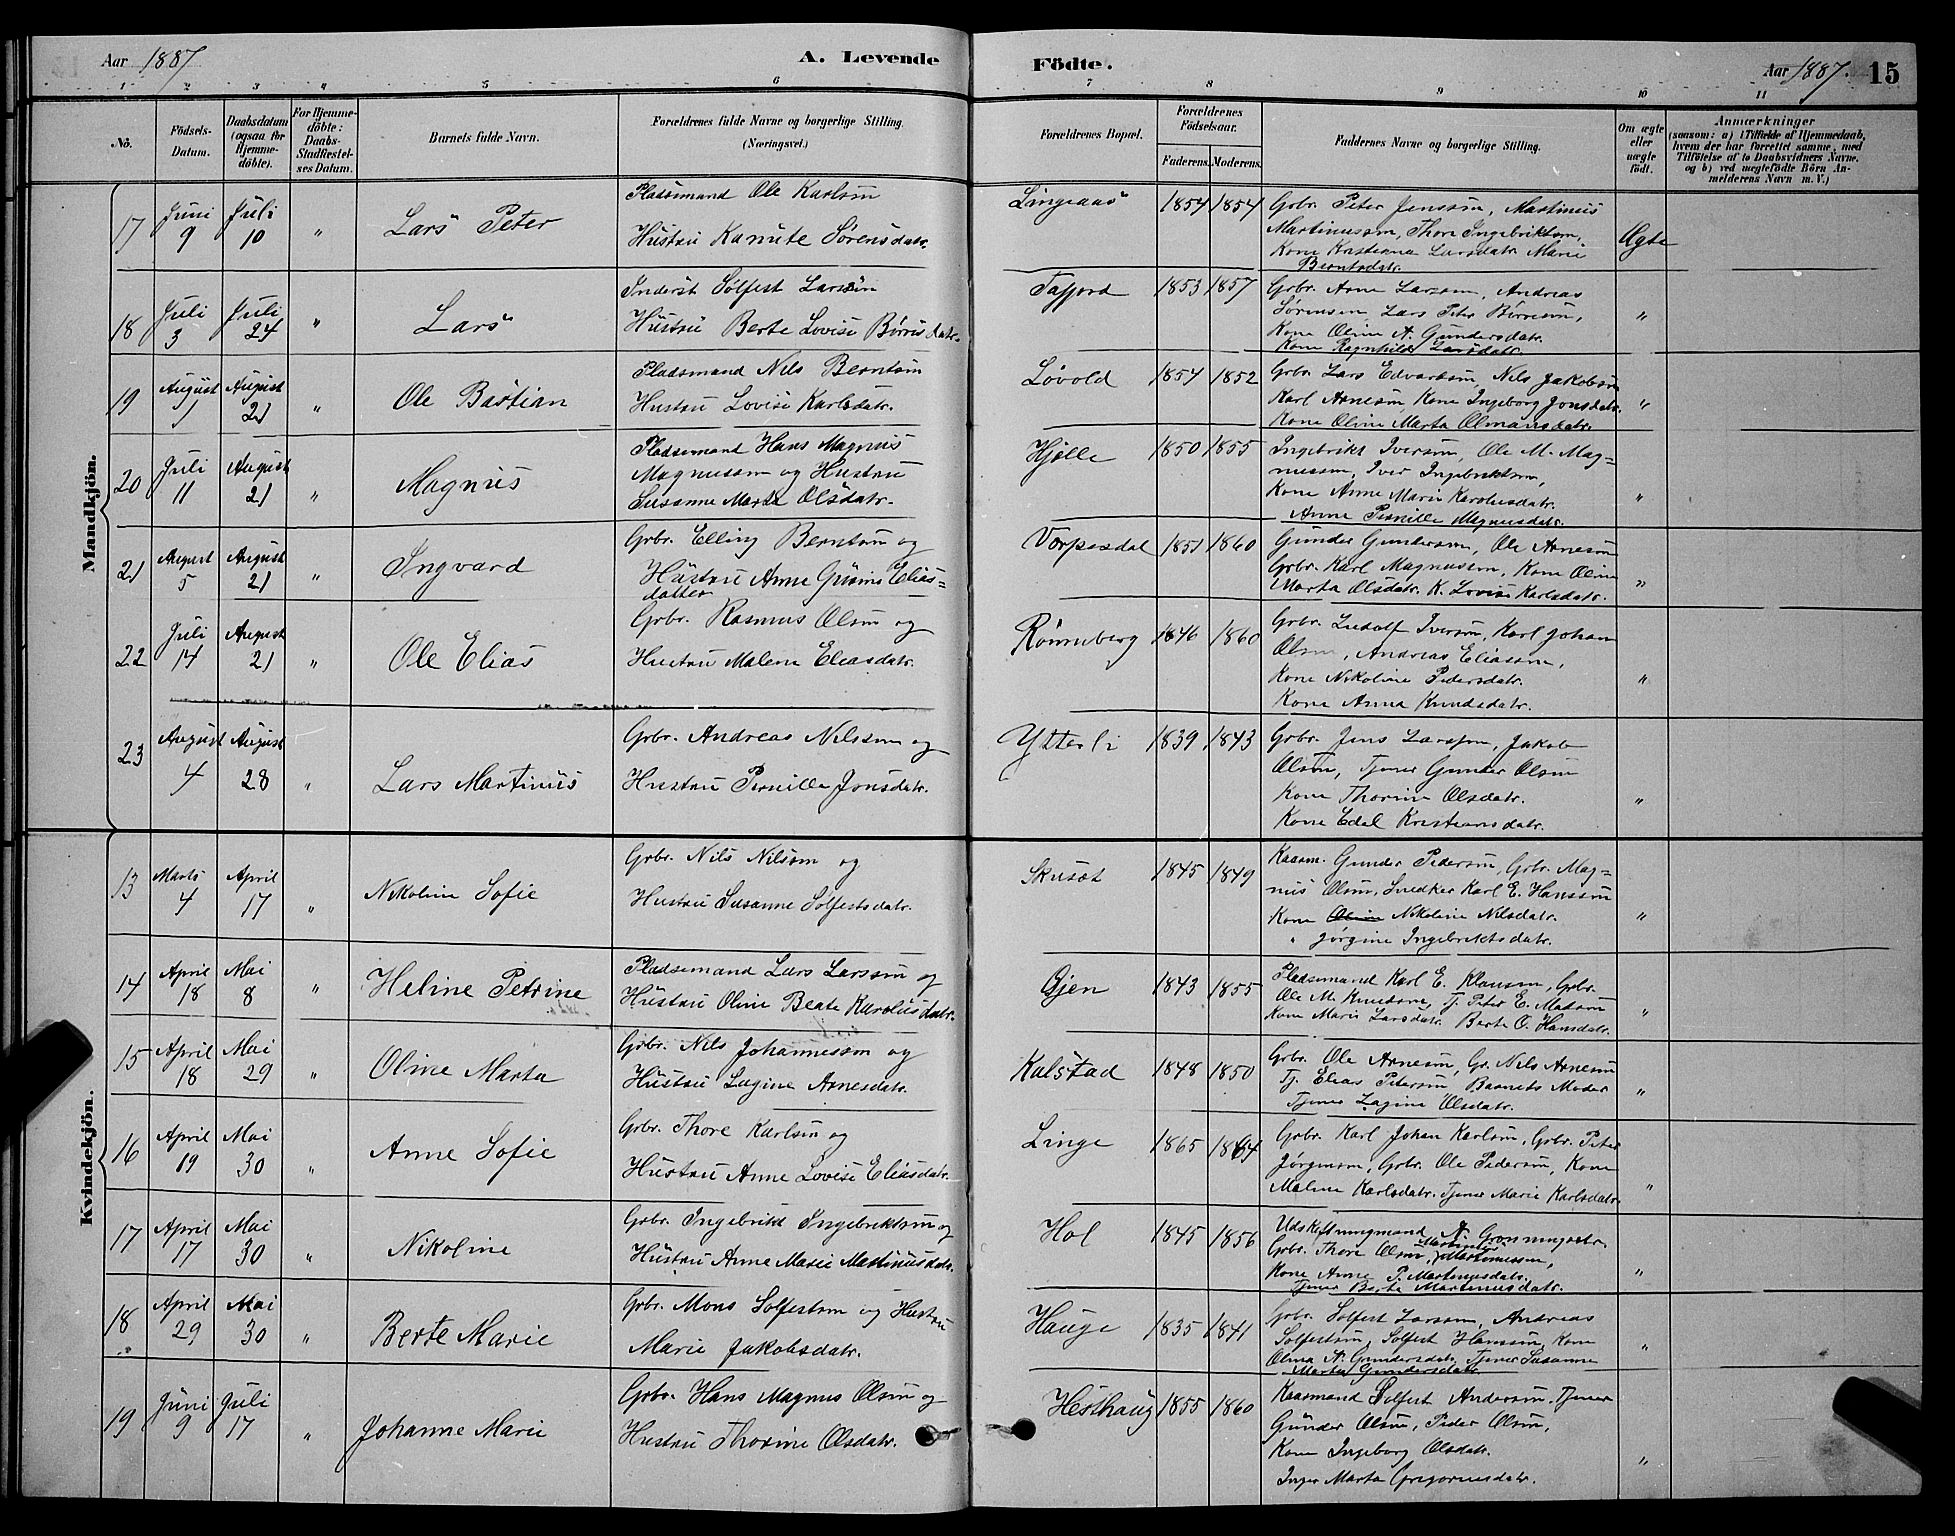 Aar 1887 A. Levende Födte. Aar 1887. 15
1 2 3 4 5 6 7 8 9 10 11
No. Födsels-Datum. Daabsdatum (ogsaa for Hjemmedöbte). For Hjemmedöbte: Daabs-Stadfæstelses Datum. Barnets fulde Navn. Forældrenes fulde Navne og borgerlige Stilling. (Næringsvei.) Forældrenes Bopæl. Forældrenes Födselsaar. Faderens. Moderens. Faddernes Navne og borgerlige Stilling. Om ægte eller uægte födt. Anmærkninger (saasom: a) i Tilfælde af Hjemmedaab, hvem der har forrettet samme, med Tilföielse af to Daabsvidners Navne, og b) ved uægtefödte Börn Anmelderens Navn m. V.)
Mandkjön.
17 Juni 9 Juli 10 " Lars Peter
Pladsemand Ole Karlsen
Hustru Kanute Sørensdatr.
Lingeaas 1854 1854
Grbr. Peter Jenssen, Martinus
Martinussen, Thore Ingebriktsen,
Kone Kristiane Larsdatr. Marie
Berntsdatr.
Ægte
18 Juli 3 Juli 24 " Lars
Inderst Sølfest Larssen
Hustru Berte Lovise Børresdatr.
Tafjord 1853 1857
Grbr. Arne Larssen, Andreas
Sørensen, Lars Peter Børresen,
Kone Oline A. Gundersdatr.
Kone Ragnhild Larsdatr.
"
19 August 1 August 21 " Ole Bastian
Pladsmand Nils Berntsen
Hustru Lovise Karlsdatr.
Løvold 1854 1852
Grbr. Lars Edvardsen, Nils Jakobsen
Karl Arnesen Kone Ingeborg Jonsdatr.
Kone Oline Marta Olmansdatr.
"
20 Juli 11 August 21 " Magnus
Pladsemand Hans Magnus
Magnussen og Hustru
Susanne Marta Olsdatr.
Hjelle 1850 1855
Ingebrikt Iversen, Ole M. Mag=
nussen, Iver Ingebriktsen,
Kone Anne Marie Karolusdatr.
Anne Pernille Magnusdatr.
"
21 August 5 August 21 " Ingvard
Grbr. Elling Berntsen og
Hustru Anne Gurine Elias=
datter
Vorpesdal 1851 1860
Gunder Gundersen, Ole Arnesen
Grbr. Karl Magnussen, Kone Oline
Marta Olsdatr. K. Lovise Karlsdatr.
"
22 Juli 14 August 21 " Ole Elias
Grbr. Rasmus Olsen og
Hustru Malene Eliasdatr.
Rønneberg 1846 1860
Grbr. Ludolf Iversen, Karl Johan
Olsen, Andreas Eliassen,
Kone Nikoline Pedersdatr.
Kone Anna Knudsdatr.
"
23 August 4 August 28 " Lars Martinus
Grbr. Andreas Nilssen og
Hustru Pernille Jonsdatr.
Ytterli 1839 1843
Grbr. Jens Larssen, Jakob
Olsen, Tjener Gunder Olsen
Kone Thorine Olsdatr.
Kone Edel Kristiansdatr.
"
Kvindekjön.
13 Marts 4 April 17 " Nikoline Sofie
Grbr. Nils Nilsen og
Hustru Susanne Solfestsdatr.
Skusæt 1845 1849
Kaarm. Gunder Pedersen, Grbr. Mag=
nus Olsen, Snedker Karl E. Hanssen
Kone Oline Nikoline Nilsdatr.
" Jørgine Ingebriktsdatr.
"
14 April 18 Mai 8 " Heline Petrine
Pladsemand Lars Larssen og
Hustru Oline Beate Karolusdatr.
Øjen 1843 1855
Pladsemand Karl E. Klausen, Grbr.
Ole M. Knudsen, Tj. Peter E. Madsen
Kone Marie Larsdatr. Berte O. Hansdatr.
"
15 April 18 Mai 29 " Oline Marta
Grbr. Nils Johannessen og
Hustru Lagine Arnesdatr.
Kalstad 1848 1850
Grbr. Ole Arnesen, Gr. Nils Arnesen
Tj. Elias Petersen Barnets Moder
Tjener Lagine Olsdatr.
"
16 April 19 Mai 30 " Anne Sofie
Grbr. Thore Karlsen og
Hustru Anne Lovise Eliasdatr.
Linge 1865 1864
Grbr. Karl Johan Karlsen, Grbr. Peter
Jørgensen, Grbr. Ole Pedersen, Kone
Malene Karlsdatr. Tjener Marie Karlsdatr.
"
17 April 17 Mai 30 " Nikoline
Grbr. Ingebrikt Ingebriktsen og
Hustru Anne Marie Martinusdatr.
Hol 1845 1856
Udskiftningmand N. Grønningsæter
Grbr. Thore Olsen, Martinus Martinussen,
Kone Anne P. Martinusdatr.
Tjener Berte Martinusdatr.
"
18 April 29 Mai 30 " Berte Marie
Grbr. Mons Solfestsen og Hustru
Marie Jakobsdatr.
Hauge 1835 1841
Grbr. Solfest Larssen, Andreas
Solfestsen, Solfest Hanssen, Kone
Olina N. Gundersdatr. Tjener Susanne
Marta Gundersdatr.
"
19 Juni 9 Juli 17 " Johanne Marie
Grbr. Hans Magnus Olsen og
Hustru Thorine Olsdatr.
Hesthaug 1855 1860
Kaarmand Solfest Andersen, Tjener
Gunder Olsen, Peder Olsen,
Kone Ingeborg Olsdatr.
Inger Marta Gregoriusdatr.
"